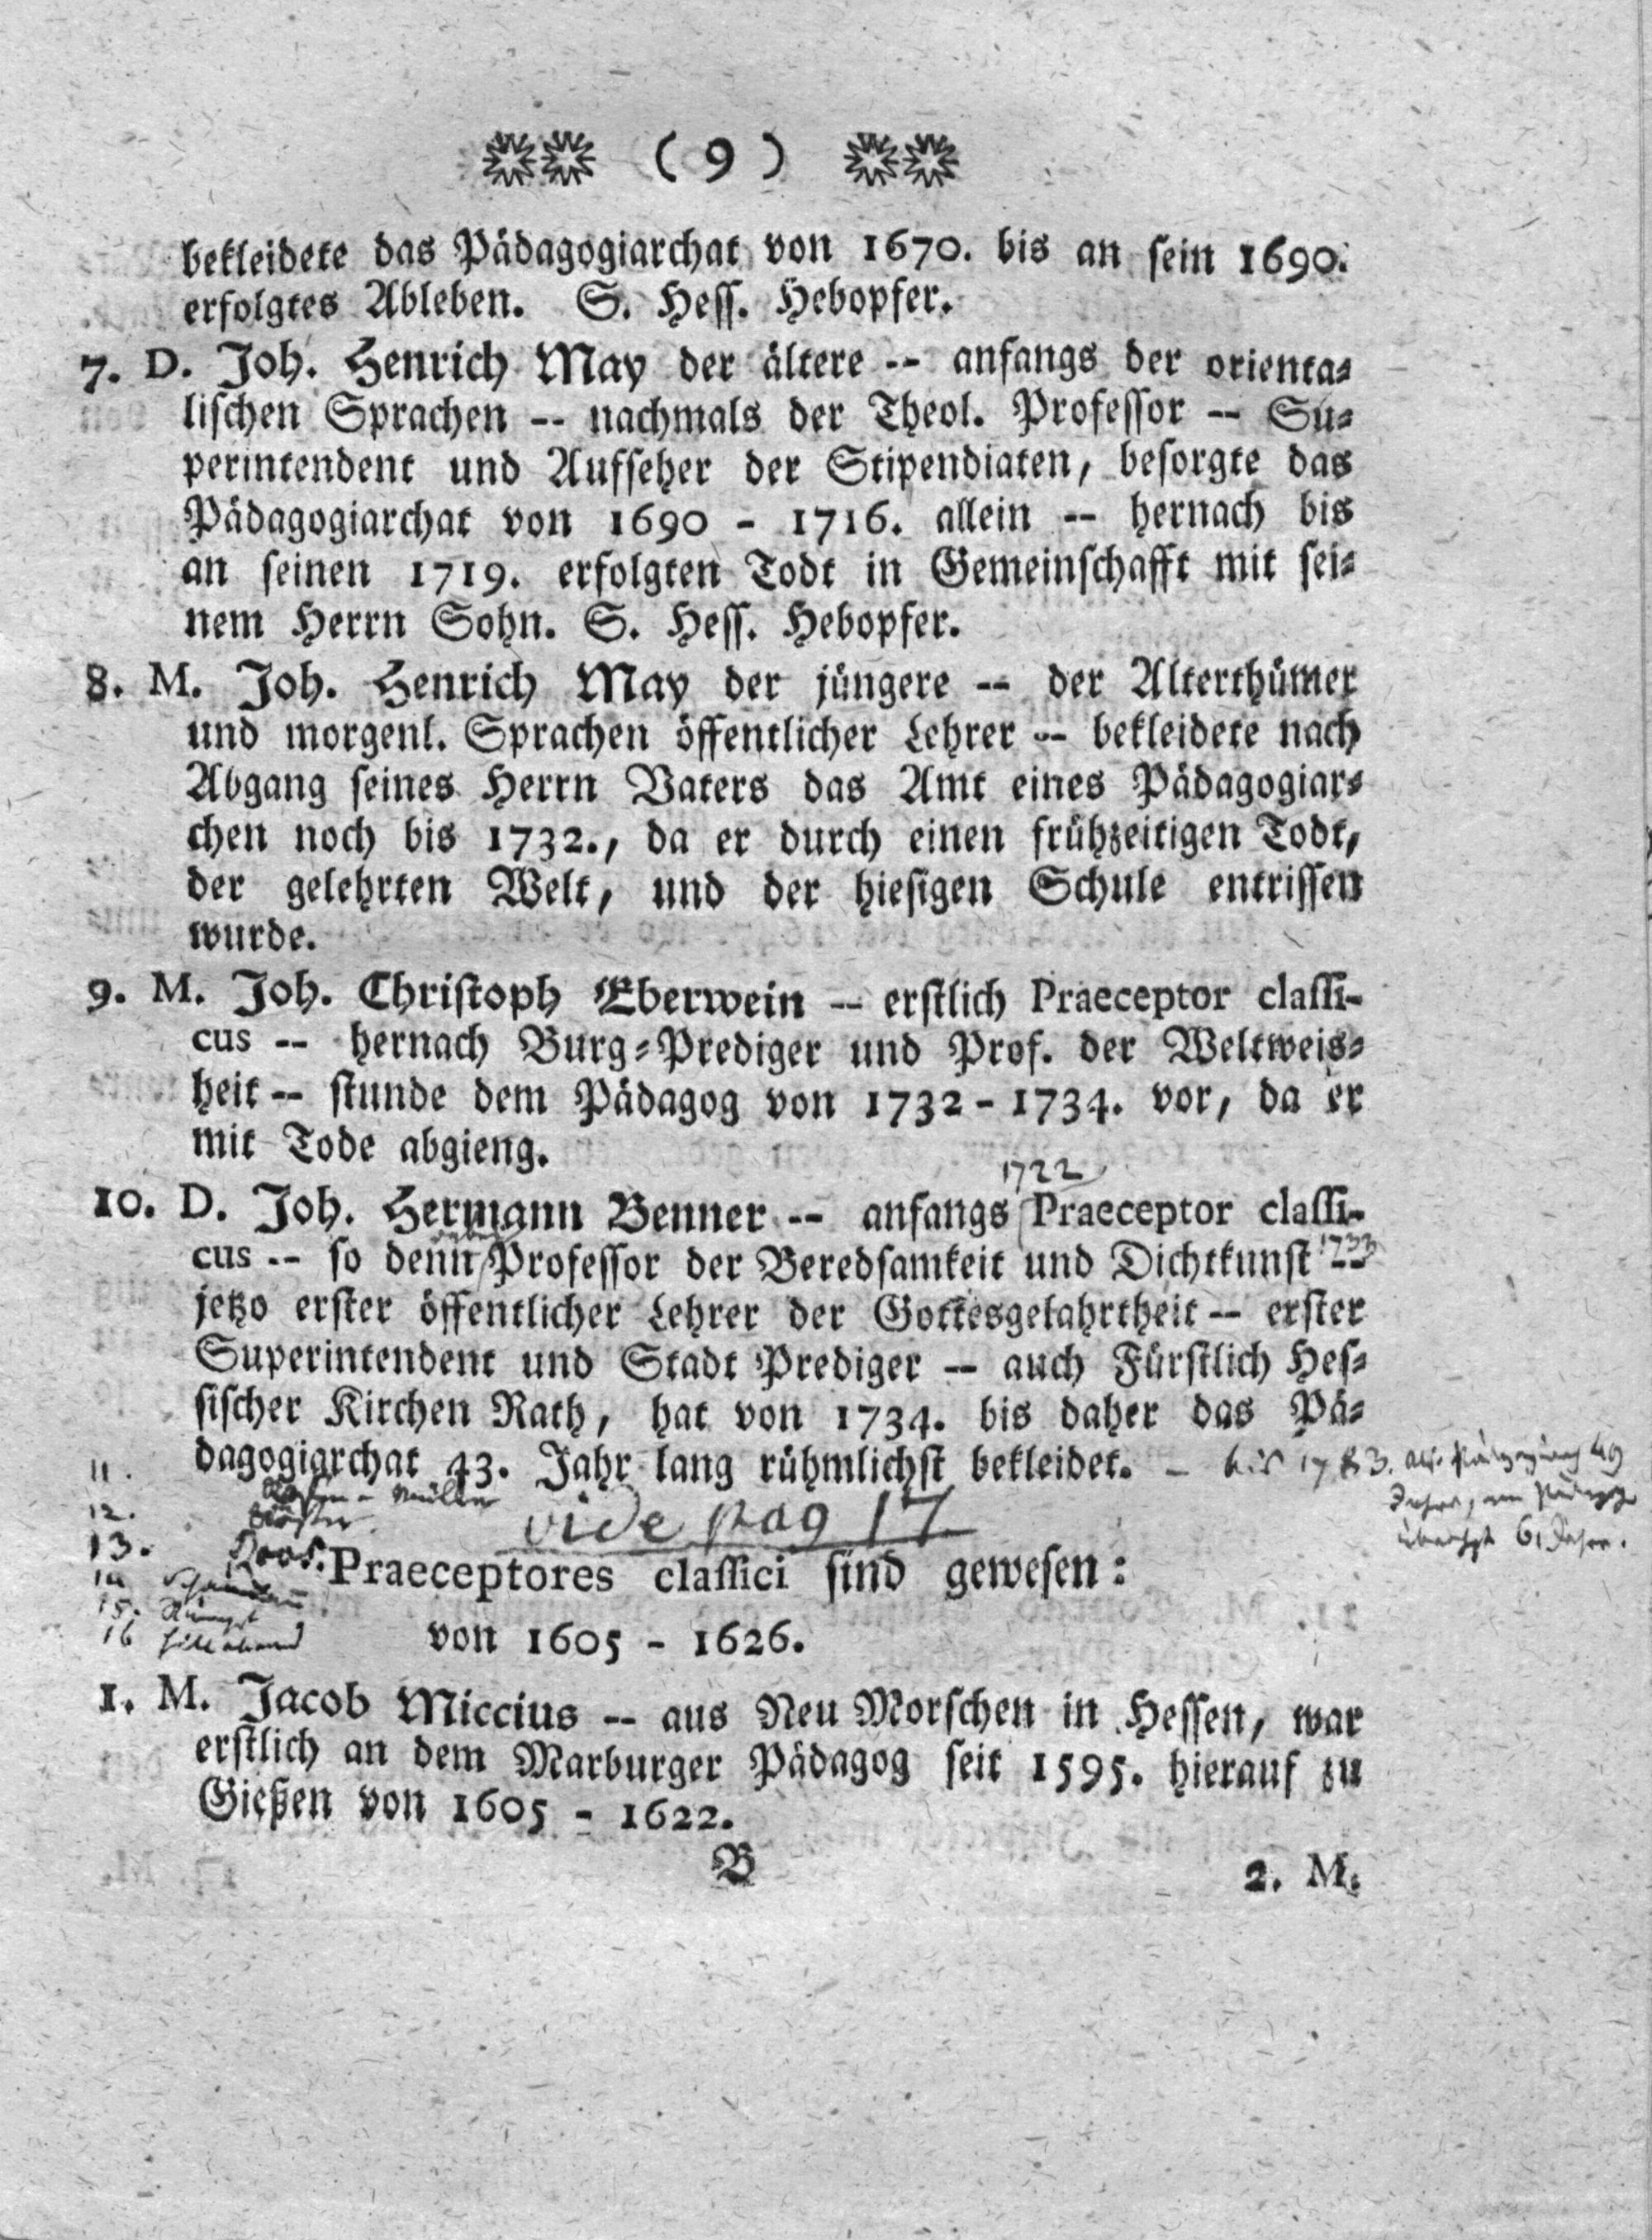 ( 9 )
bekleidete das Pädagogiarchat von 1670. bis an sein 1690.
erfolgtes Ableben. S. Hess. Hebopfer.
7. D. Joh. Henrich May der ältere -- anfangs der orienta-
lischen Sprachen -- nachmals der Theol. Professor -- Su-
perintendent und Aufseher der Stipendiaten, besorgte das
Pädagogiarchat von 1690 - 1716. allein -- hernach bis
an seinen 1719. erfolgten Todt in Gemeinschafft mit sei-
nem Herrn Sohn. S. Hess. Hebopfer.
8. M. Joh. Henrich May der jüngere -- der Alterthümer
und morgenl. Sprachen öffentlicher Lehrer -- bekleidete nach
Abgang seines Herrn Vaters das Amt eines Pädagogiar-
chen noch bis 1732., da er durch einen frühzeitigen Todt,
der gelehrten Welt, und der hiesigen Schule entrissen
wurde.
9. M. Joh. Christoph Eberwein -- erstlich Praeceptor classi-
cus -- hernach Burg-Prediger und Prof. der Weltweis-
heit -- stunde dem Pädagog von 1732 - 1734. vor, da er
mit Tode abgieng.
1722
10. D. Joh. Hermann Benner -- anfangs Praeceptor classi-
cus -- so denn Professor der Beredsamkeit und Dichtkunst -- 1733
jetzo erster öffentlicher Lehrer der Gottesgelahrtheit -- erster
Superintendent und Stadt Prediger -- auch Fürstlich Hes-
sischer Kirchen Rath, hat von 1734. bis daher das Pä-
dagogiarchat 43. Jahr lang rühmlichst bekleidet. - bis 1783. als 49
Jahre, am
6, Jahre.
11. Müller
12.
vide pag 17
13. Roos.
Praeceptores classici sind gewesen:
14
15.
16 Hillebrand
von 1605 - 1626.
1. M. Jacob Miccius -- aus Neu Morschen in Hessen, war
erstlich an dem Marburger Pädagog seit 1595. hierauf zu
Gießen von 1605 - 1622.
B
2. M.